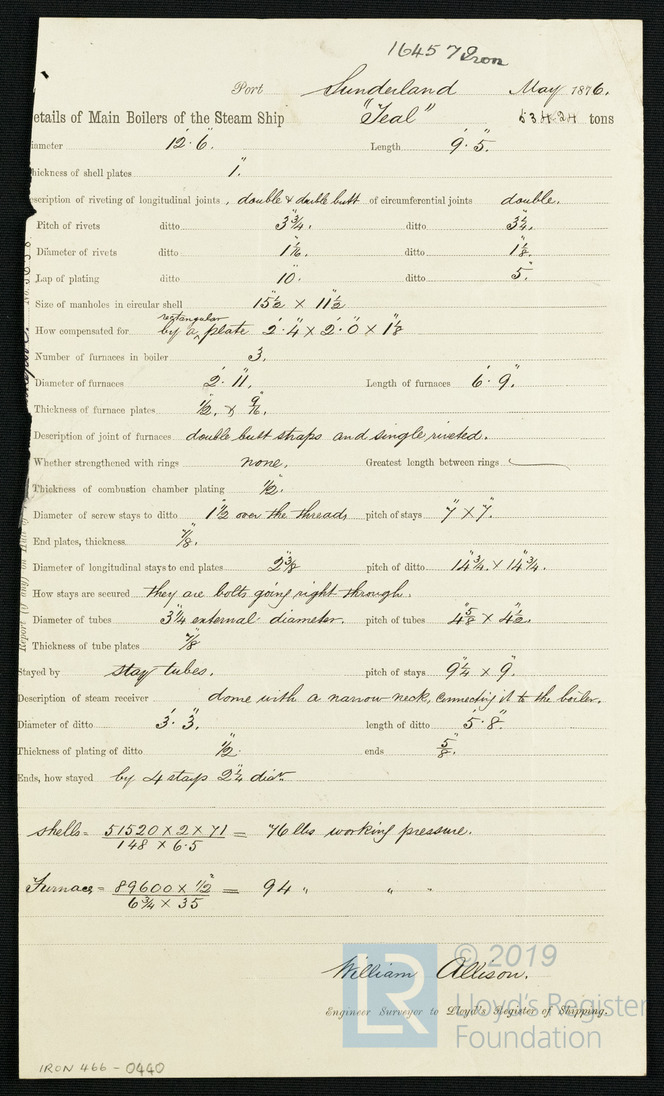 16457 Iron
Port Sunderland May 1876.
etails of Main Boilers of the Steam Ship "Teal" tons
iameter 12'. 6". Length 9'. 5".
hickness of shell plates 1".
escription of riveting of longitudinal joints, double & double butt of circumferential joints double.
Pitch of rivets ditto 3 3/4". ditto 3 1/4".
Diameter of rivets ditto ditto 1 1/8".
Lap of plating ditto 10". ditto 5".
Size of manholes in circular shell 15 1/2" × 11 1/2"
rectangular
How compensated for by a ^ plate 2'. 4" × 2'. 0" × 1 1/8"
Number of furnaces in boiler 3.
Diameter of furnaces 2'. 11". Length of furnaces 6'. 9".
Thickness of furnace plates 1/2". & 9/16".
Description of joint of furnaces double butt straps and single riveted.
Whether strengthened with rings none. Greatest length between rings
Thickness of combustion chamber plating 1/2".
Diameter of screw stays to ditto 1 1/2" over the threads pitch of stays 7" × 7".
End plates, thickness 7/8".
Diameter of longitudinal stays to end plates 2 3/8" pitch of ditto 14 3/4" × 14 3/4".
How stays are secured they are bolts going right through.
Diameter of tubes 3 1/4" external diameter. pitch of tubes 4 5/8" × 4 1/2".
Thickness of tube plates 7/8"
Stayed by stay tubes. pitch of stays 9 1/4" × 9".
Description of steam receiver dome with a narrow neck, connecting it to the boiler.
Diameter of ditto 3'. 3". length of ditto 5'. 8".
Thickness of plating of ditto 1/2". ends 5/8".
Ends, how stayed by 4 stays 2 1/4" diar.
Shells = 51520 × 2 × 71 / 148 × 6.5 = 76 lbs working pressure.
Furnaces = 89600 × 1/2 / 6 3/4 × 35 = 94 " " "
William Allison.
Engineer Surveyor to Lloyd's Register of Shipping.
LR © 2019
Lloyd's Register
Foundation
IRON 466 - 0440
Report (if any) on Hull